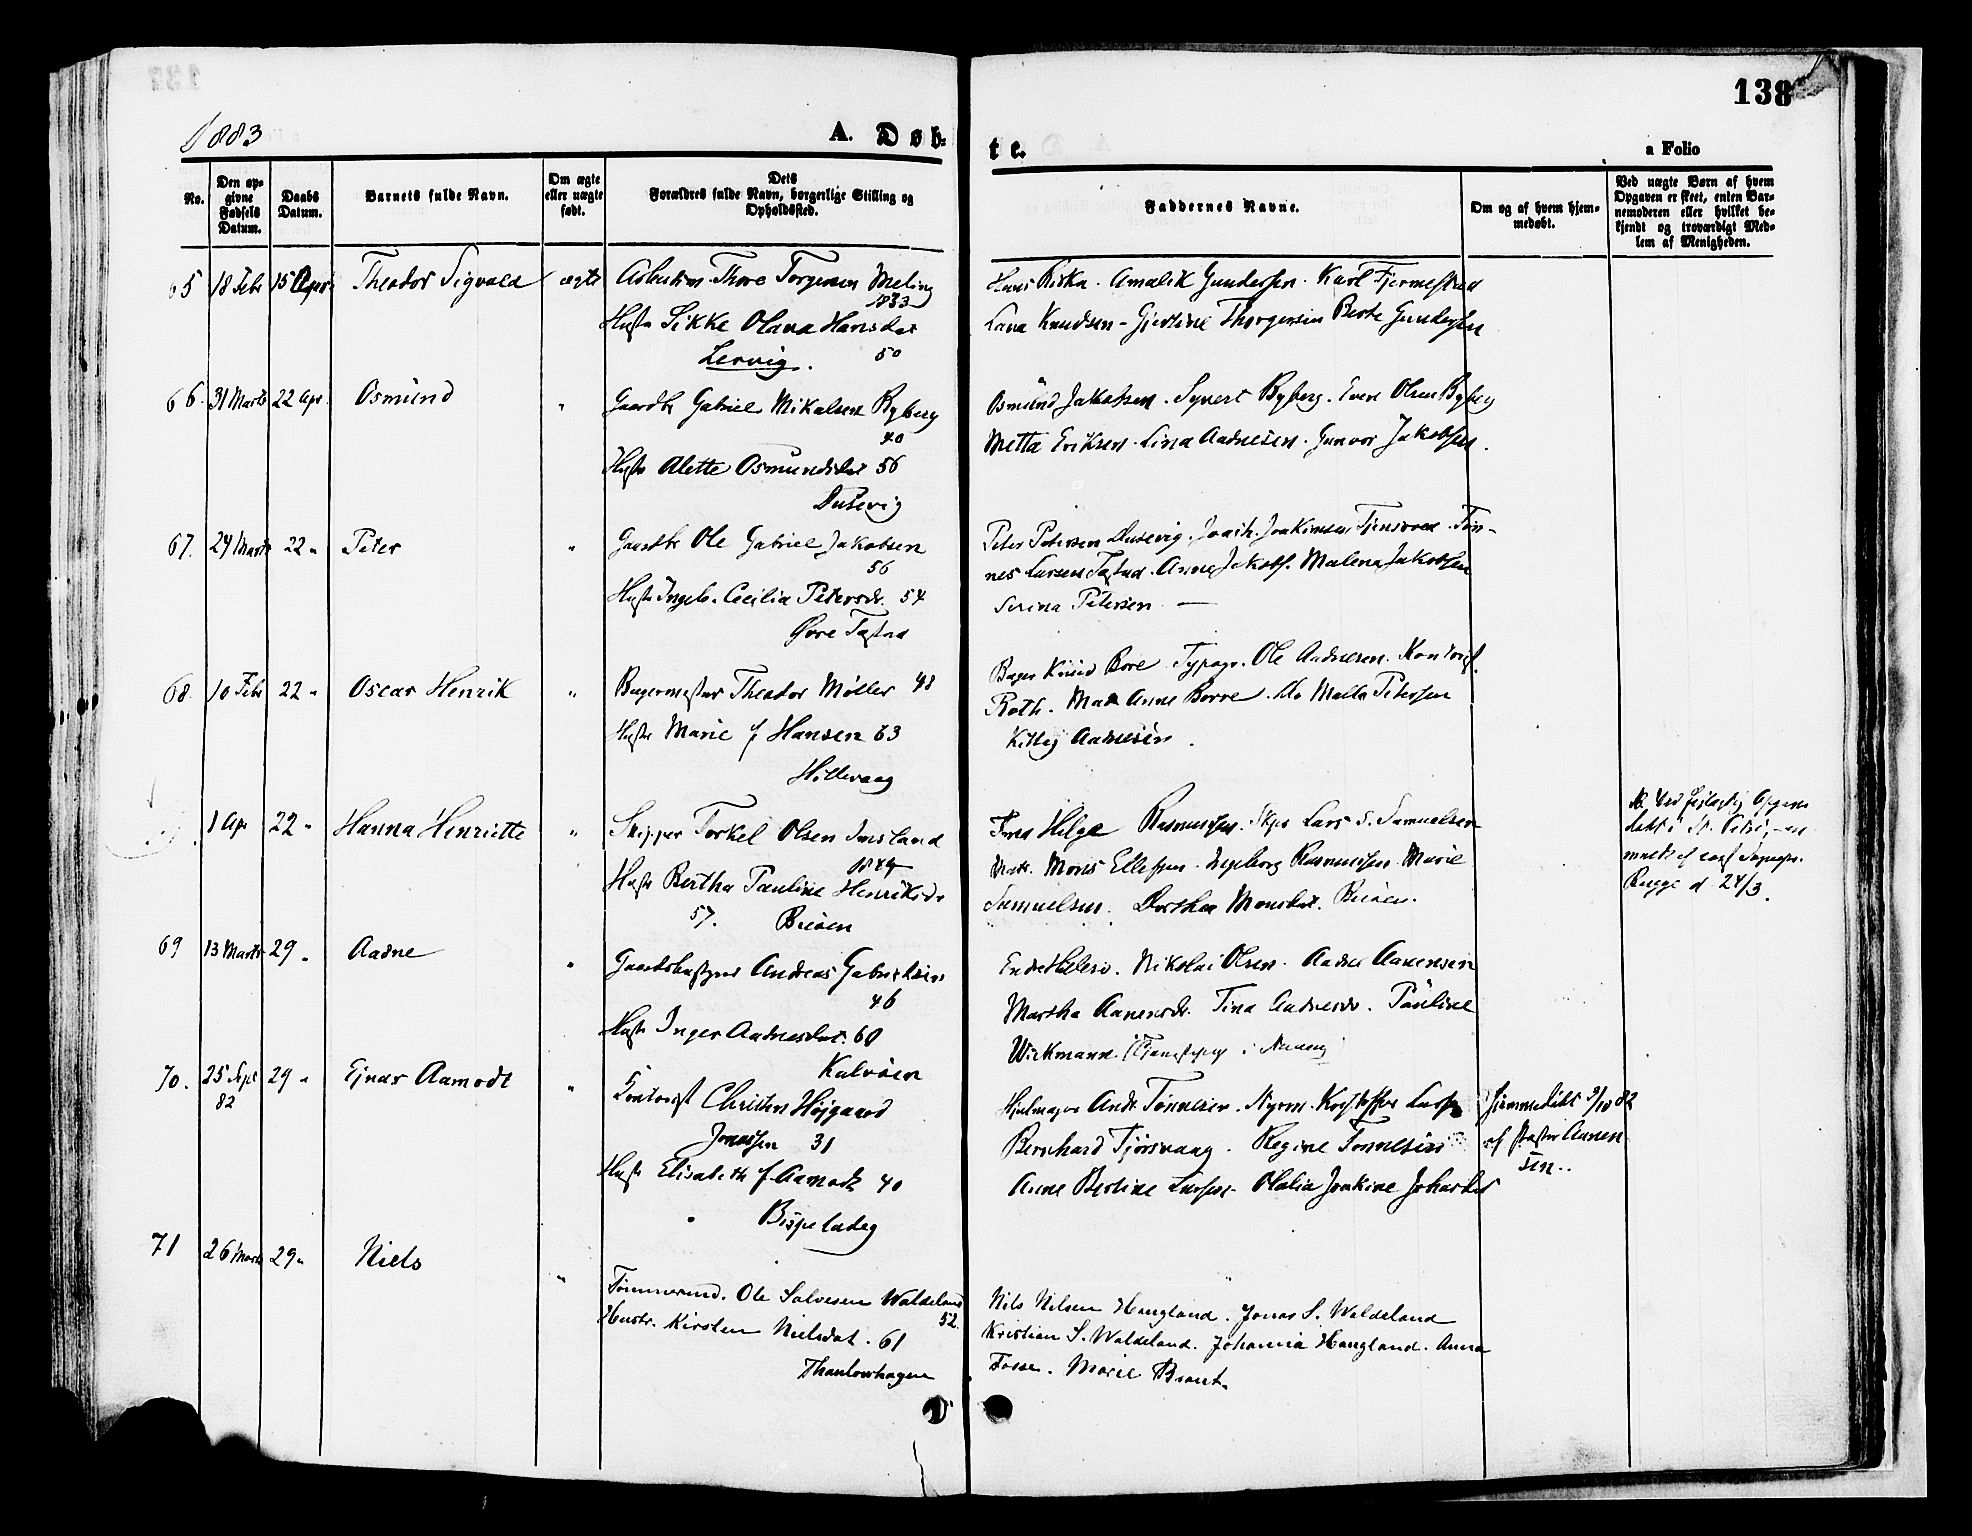 138
1883
A. Døb-
te.
a Folio
No.
Den op-
givne
Fødsels
Datum.
Daabs
Datum.
Barnets fulde Navn.
Om ægte
eller uægte
født.
Dets
Forældres fulde Navn, borgerlige Stilling og
Opholdssted.
Faddernes Navne.
Om og af hvem hjem-
medøbt.
Ved uægte Børn af hvem
Opgaven er skeet, enten Bar-
nemoderen eller hvilket be-
kjendt og troværdigt Med-
lem af Menigheden.
65 18 Feb 15 April Theodor Sigvald ægte Thore Torgersen Meling
1833
Hustr Sikke Olava Hansdat
Lervig. 50
Hans Riska. Amalik Gundersen. Karl Fjermestad
Lava Knudsen - Gjertine Thorgersen Berte Gundersen
66. 31 Marts 22 Apr. Osmund " Gaardbr Gabriel Mikalsen Byberg
40
Hustr Alette Osmundsdat 56
Dusevig
Osmund Jakobsen. Syvert Byberg. Even Olsen Byberg
Metta Eriksen. Lina Aadnesen. Gunvor Jakobsen.
67. 24 Marts 22 " Peter " Gaardbr Ole Gabriel Jakobsen
56
Hustr Ingeb. Cecilia Petersdr. 54
Øvre Tastad
Peter Petersen Dusevig. Joach. Joakimsen Tjensvoll. Tøn-
nes Larsen Tastad. Anne Jakobs. Malena Jakobsen
Serina Petersen —
68. 10 Feb 22 " Oscar Henrik " Bagermester Theodor Møller 48
Hustr Marie f Hansen 63
Hillevaag
Bager Knud Bore. Typogr. Ole Aadnesen. Kontorist
Roth. Mad Anne Borre. Do Malla Petersen
Kitty Aadnesen.
1 Apr 22 " Hanna Henriette " Skipper Torkel Olsen Imsland
1849
Hustr Bertha Pauline Henriksdr
57. Buøen
Helge Rasmussen. Skpr Lars S. Samuelsen
Matr. Mons Ellefsen. Ingeborg Rasmussen. Marie
Samuelsen. Dorthea Monsdat. Buøen.
St. Petri
Bugge d. 24/3.
69 13 Marts 29 " Aadne " Andreas Gabrielsen
46
Hustr Inger Aadnesdat. 60
Kalvøen
Nikolai Olsen. Aadne Aanensen
Martha Aanensdr. Tina Aadnesdr. Pauline
Wirkmann.
70. 25 Sept 29 " Ejnar Aamodt " Kontorist Christen Højgaard
82
Jonassen 31
Hustr Elisabeth f. Aamodt 40
Bispeladeg
Hjulmager Andr. Tønnesen. Kristoffer Larsen
Bernhard Tjørsvaag. Regine Tønnesen
Anne Bertine Larsen. Olalia Joakine Johasdat
hjemmedøbt 3/10 82
af Pastor Aanen
sen..
71 26 Marts 29 " Niels " Tømmermd. Ole Salvesen Waldeland
52.
Hustr. Kirsten Nielsdat. 61
Thaulowhagen
Nils Nilsen Haugland. Jonas S. Waldeland
Kristian S. Waldeland. Johanna Haugland. Anna
Fosse. Marie Braut.